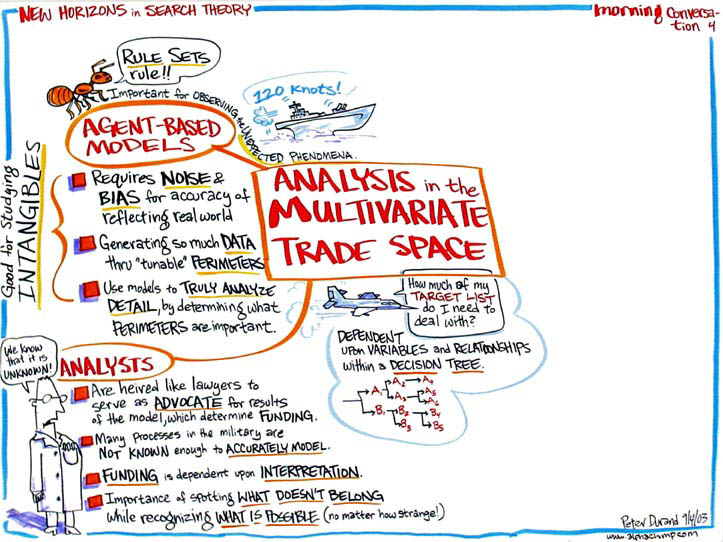 NEW HORIZONS in SEARCH THEORY
morning Conversa-
tion 4
RULE SETS
rule!!
Important for OBSERVING the UNEXPECTED PHENOMENA.
120 Knots!
AGENT-BASED
MODELS
Good for Studying
INTANGIBLES
Requires NOISE &
BIAS for accuracy of
reflecting real world
Generating so much DATA
thru "tunable" PERIMETERS
Use models to TRULY ANALYZE
DETAIL, by determining what
PERIMETERS are important.
ANALYSIS in the
MULTIVARIATE
TRADE SPACE
How much of my
TARGET LIST
do I need to
deal with?
DEPENDENT
upon VARIABLES and RELATIONSHIPS
within a DECISION TREE.
A1 A2 A4
A3 A5
A6
B1 B2 B4
B3 B5
We know
that it is
UNKNOWN!
ANALYSTS
Are heired like lawyers to
serve as ADVOCATE for results
of the model, which determine FUNDING.
Many processes in the military are
NOT KNOWN enough to ACCURATELY MODEL.
FUNDING is dependent upon INTERPRETATION.
Importance of spotting WHAT DOESN'T BELONG
while recognizing WHAT IS POSSIBLE (no matter how strange!)
Peter Durand 9/4/03
www.alphachimp.com